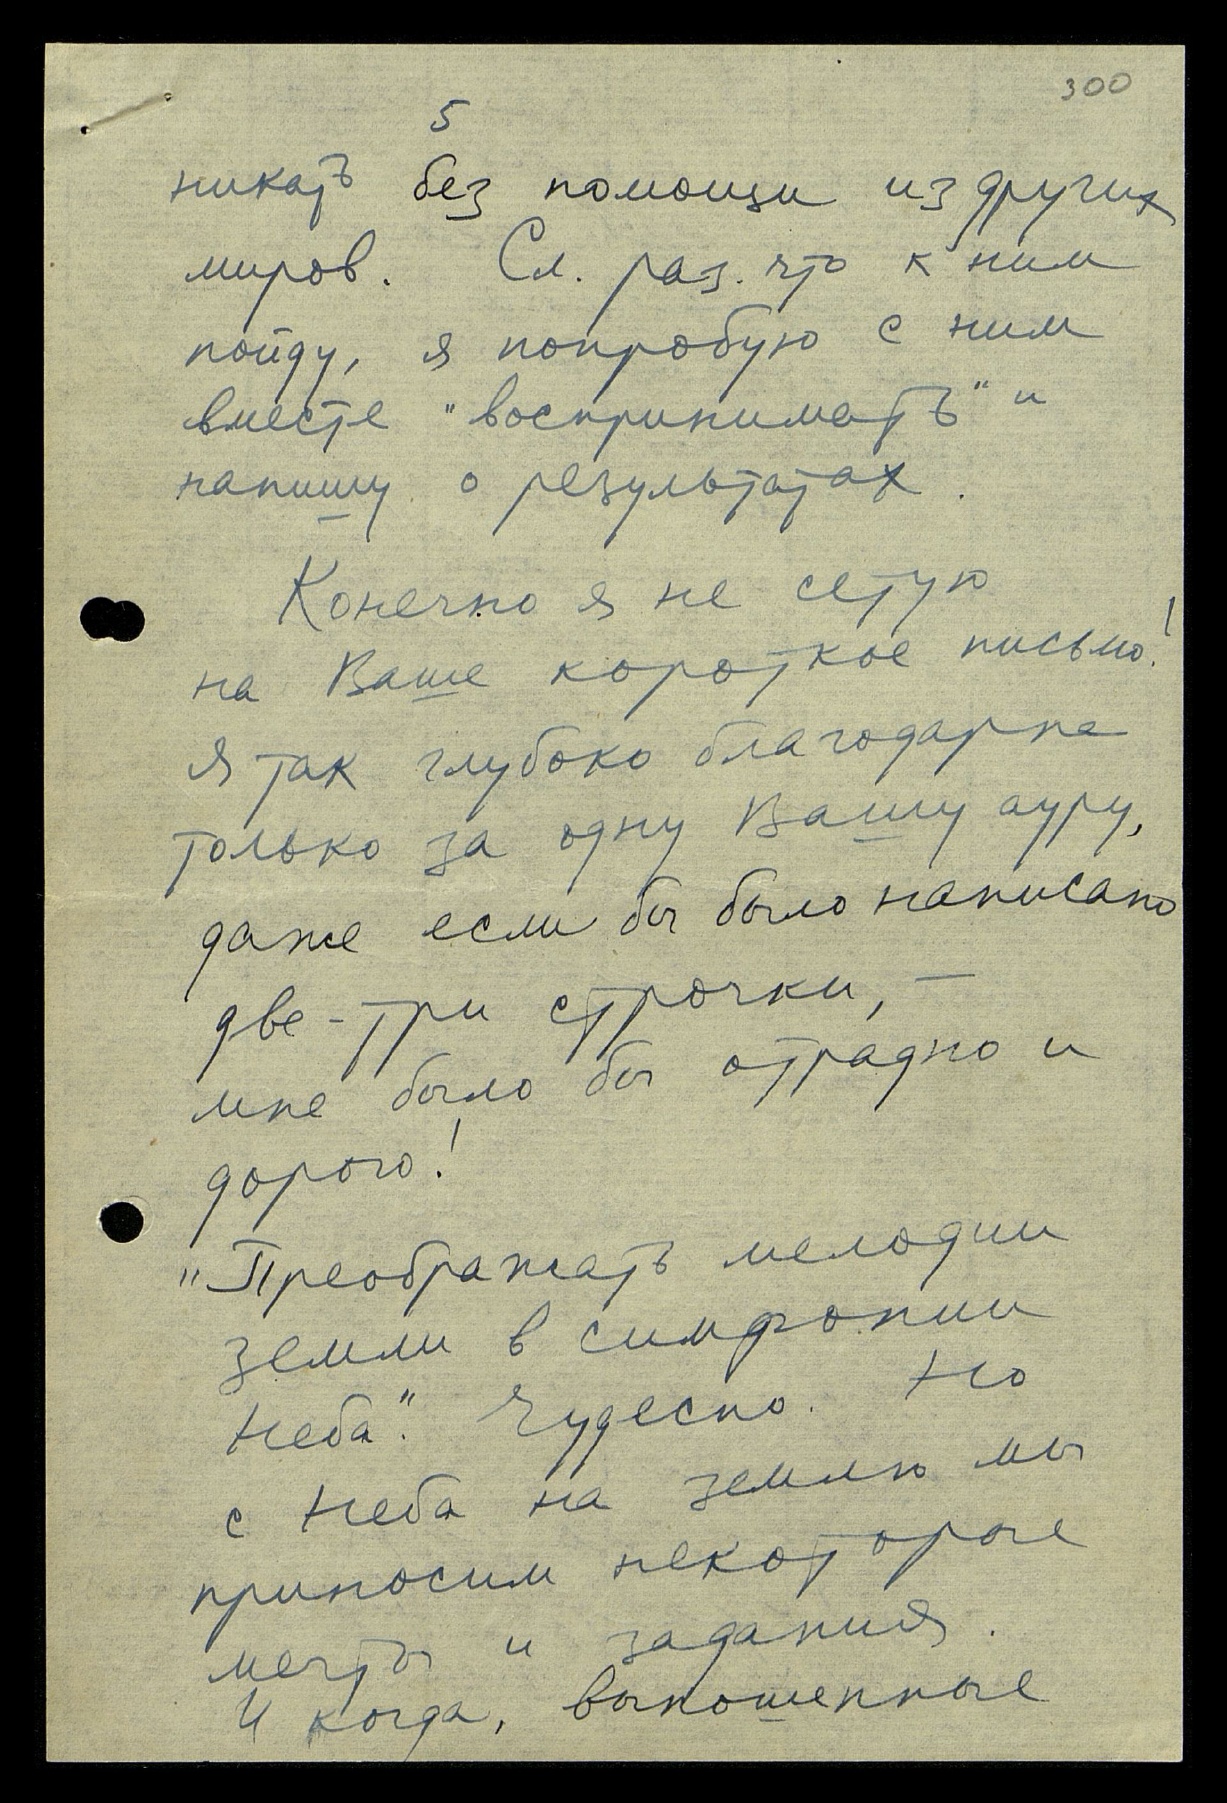 300
5
никать без помощи из других
миров. Сл. раз. что к ним
пойду, я попробую с ним
вместе "воспринимать" и
напишу о результатах.
Конечно я не сетую
на Ваше короткое письмо!
Я так глубоко благодарна
только за одну Вашу ауру,
даже если бы было написано
две-три строчки, —
мне было бы отрадно и
дорого!
"Преображать мелодии
земли в симфонии
Неба". Чудесно. Но
с Неба на землю мы
приносим некоторые
мечты и задания.
И когда, выношенные